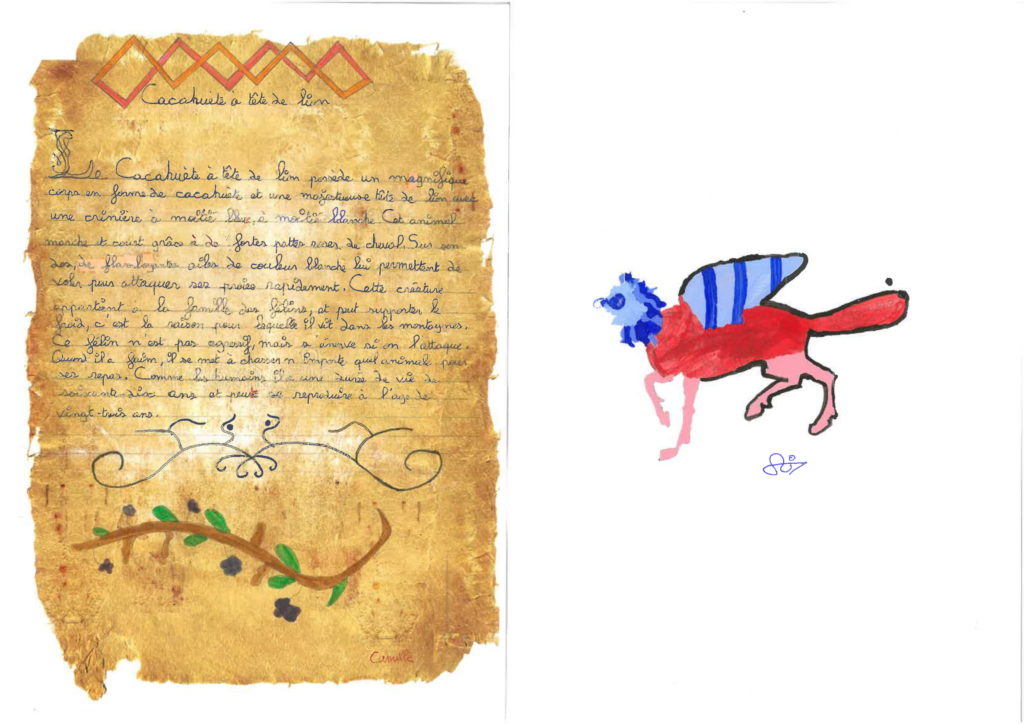 Cacahuète à tête de lion
Le Cacahuète à tête de lion possède un magnifique
corps en forme de cacahuète et une majestueuse tête de lion avec
une crinière à moitié bleu, à moitié blanche. Cet animal
marche et court grâce à de fortes pattes roses de cheval. Sur son
dos, de flamboyantes ailes de couleur blanche lui permettent de
voler pour attaquer ses proies rapidement. Cette créature
appartient a la famille des félins, et peut supporter le
froid, c'est la raison pour laquelle il vit dans les montagnes.
Ce félin n'est pas agressif, mais s'énerve si on l'attaque.
Quand il a faim, il se met à chasser n'importe quel animale pour
ses repas. Comme les humains il a une durée de vie de
soixante-dix ans et peut se reproduire à l'âge de
vingt-trois ans.
Camille